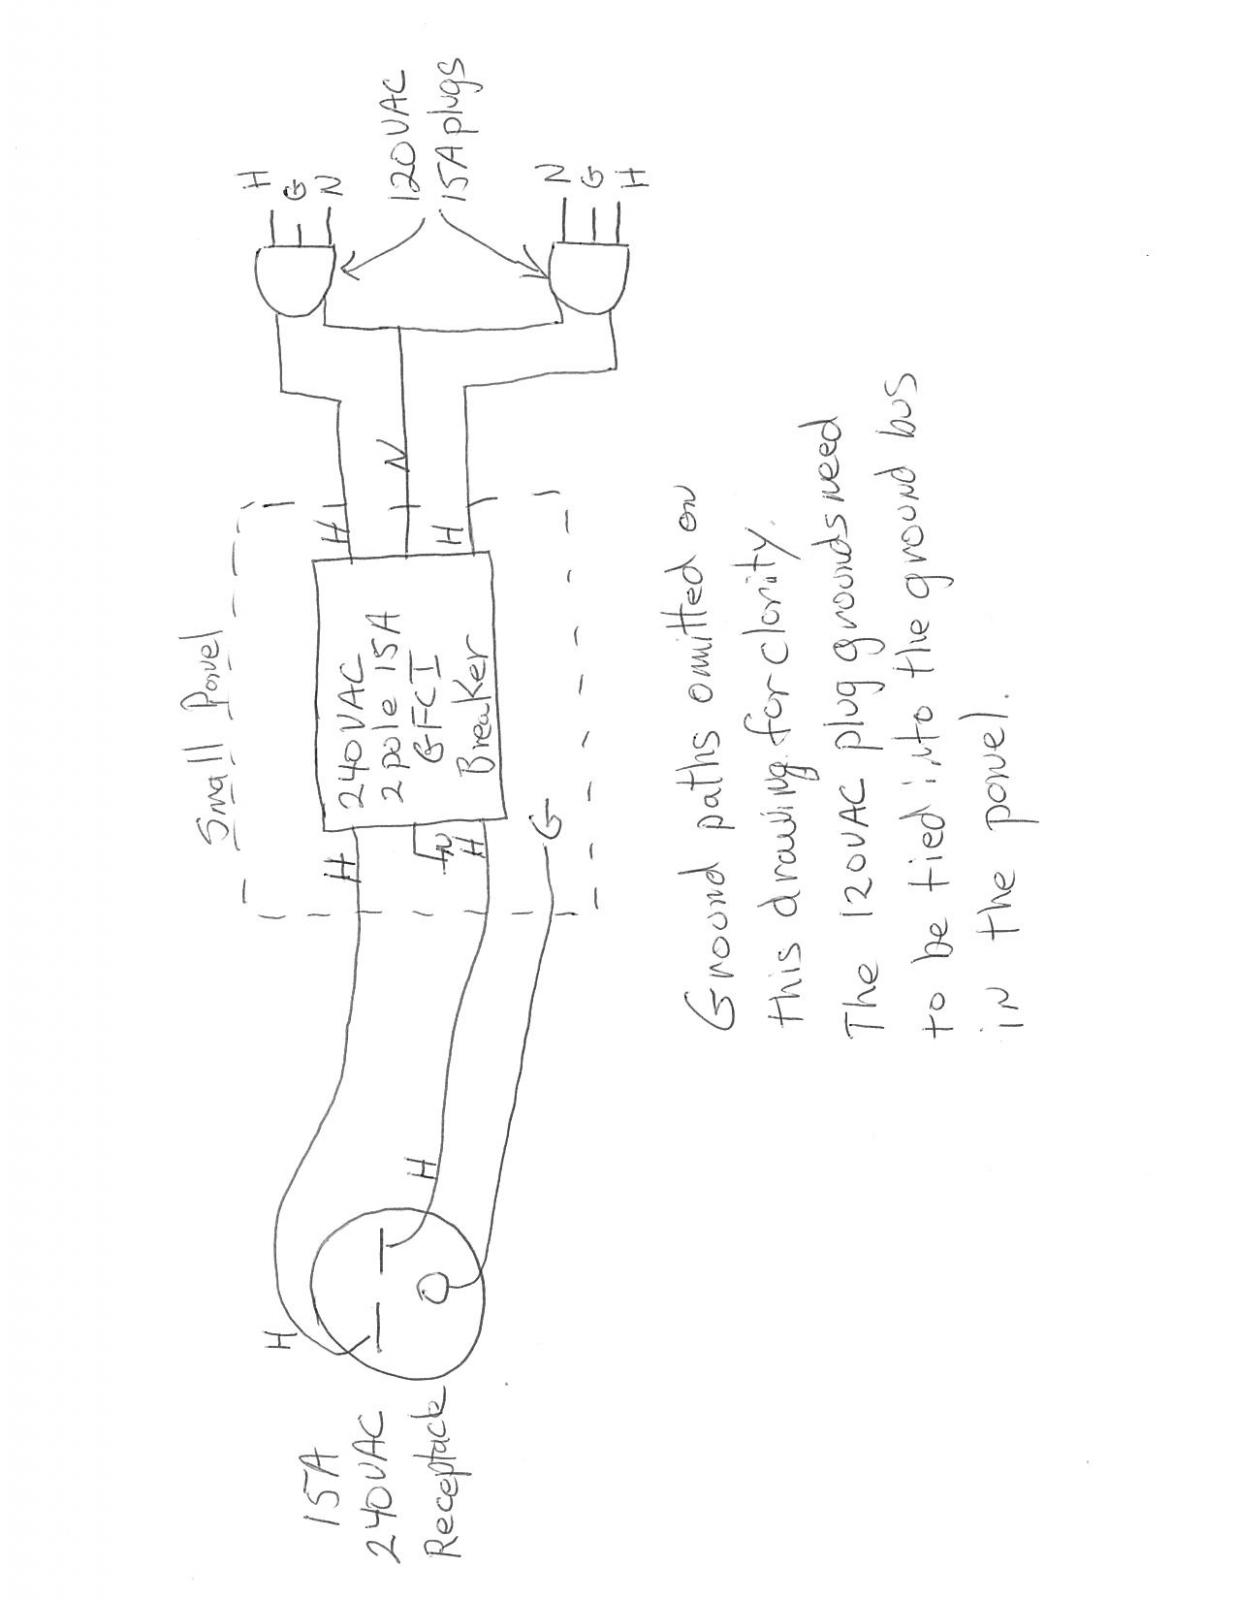 15A
240VAC
Receptacle
H
H
Small Panel
H
N
H
G
240VAC
2pole 15A
GFCI
Breaker
H
N
H
H
G
N
120VAC
15A plugs
N
G
H
Ground paths omitted on
this drawing for clarity.
The 120VAC plug grounds need
to be tied into the ground bus
in the panel.